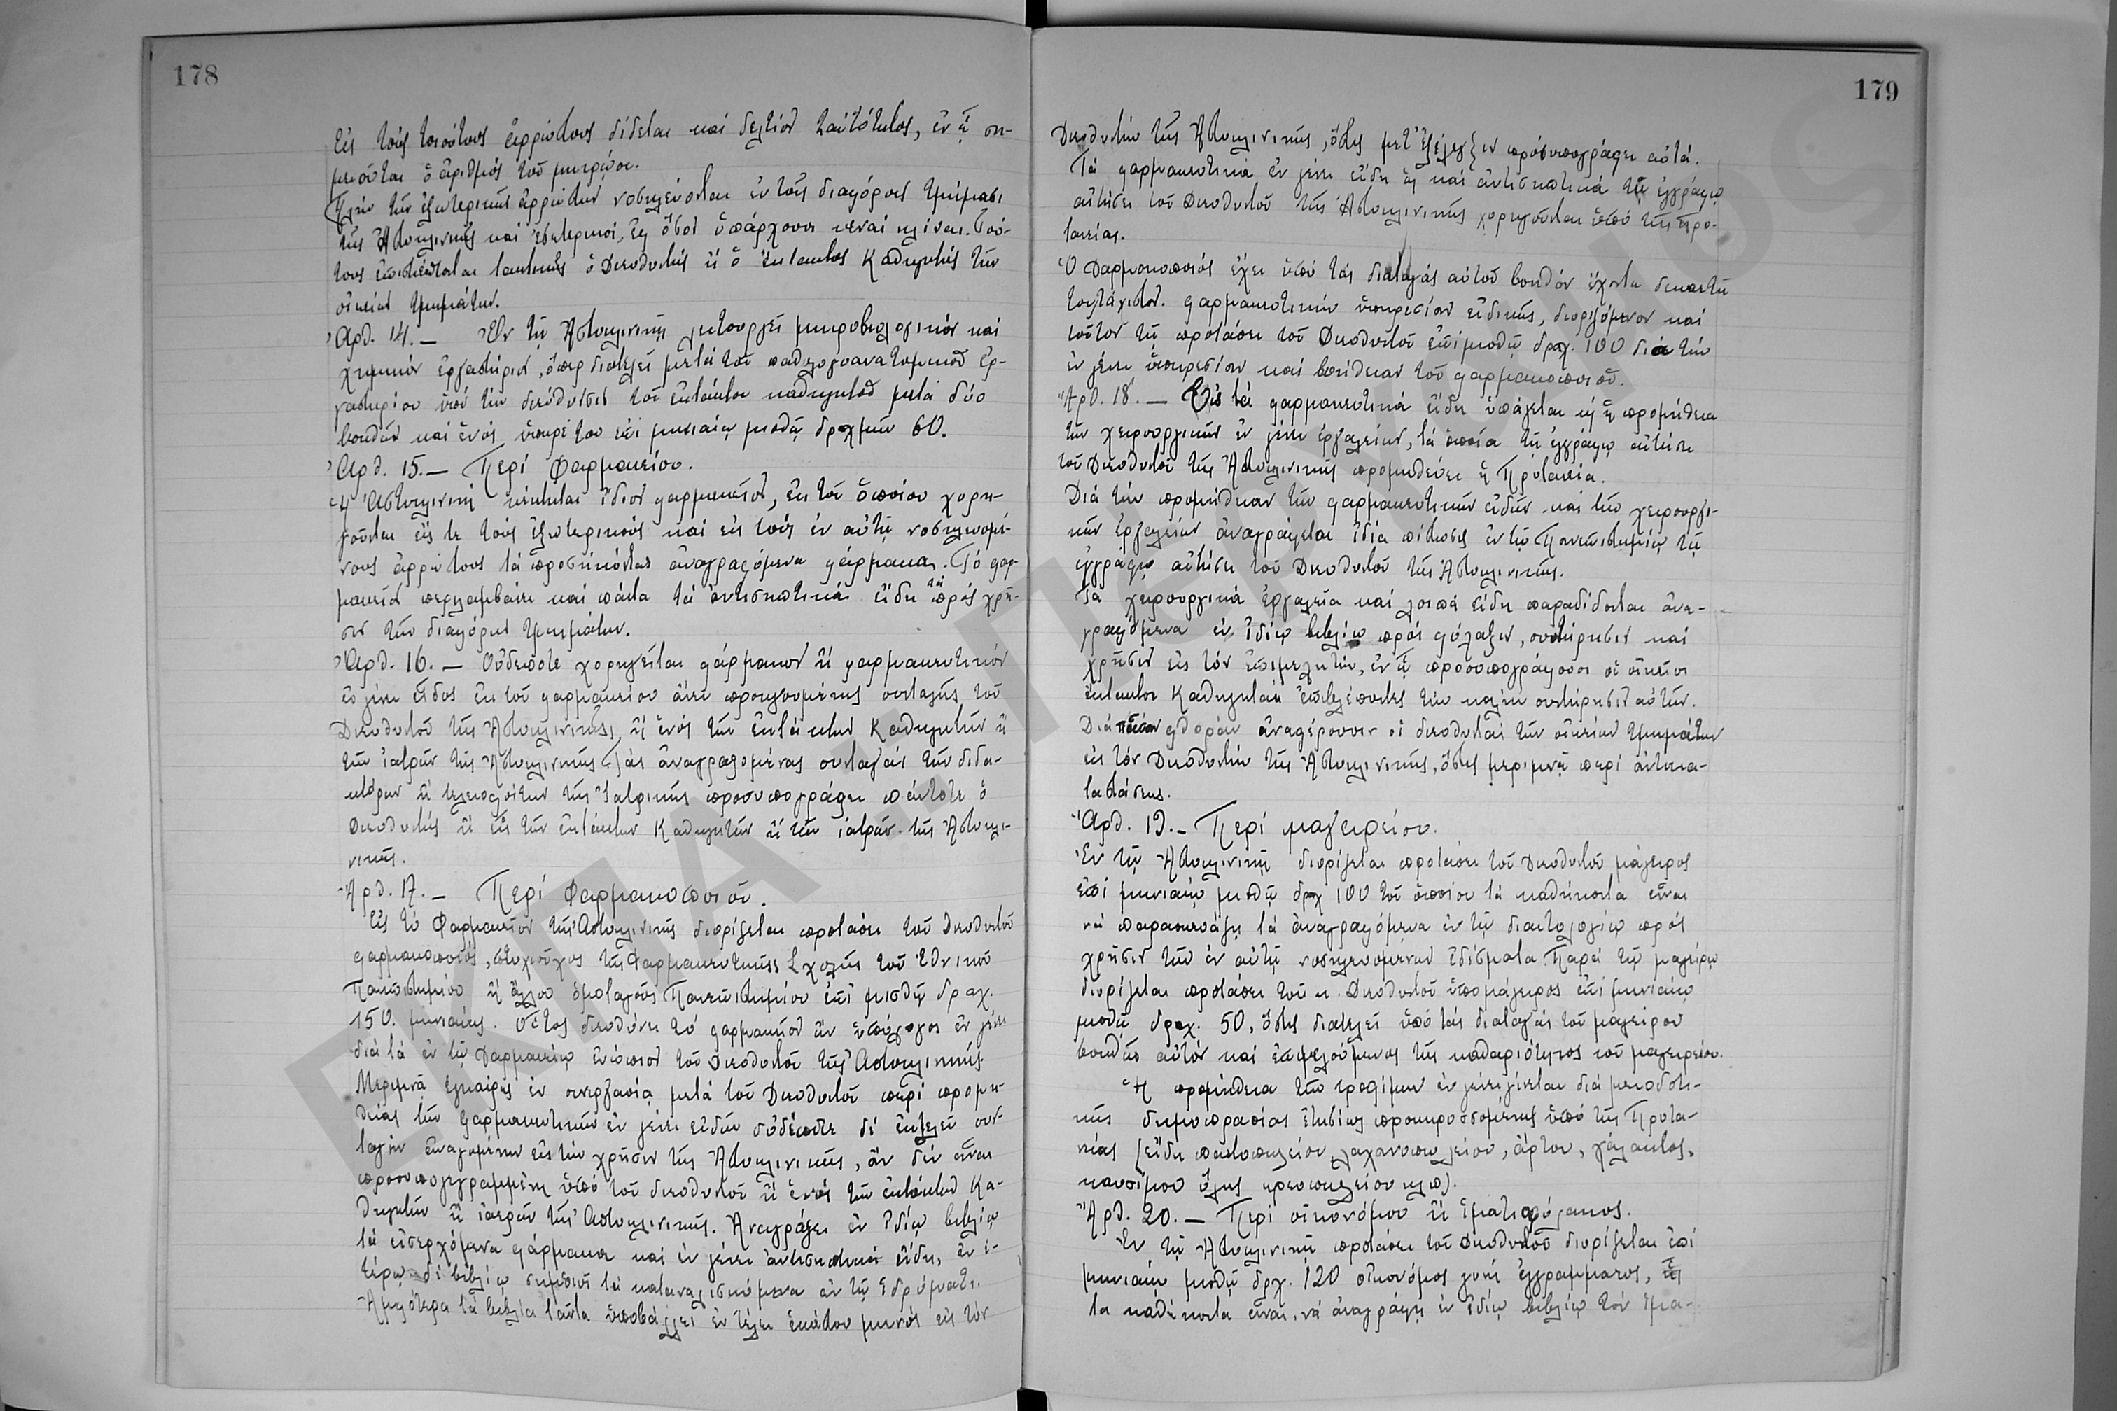 178
Εἰς τοὺς τοιούτους ἀρρώστους δίδεται καὶ δελτίον ταὐτότητος, ἐν ᾧ ση-
μειοῦται ὁ ἀριθμὸς τοῦ μητρῴου.
Πλὴν τῶν ἐξωτερικῶν ἀρρώστων νοσηλεύονται ἐν τοῖς διαφόροις τμήμασι
τῆς Ἀστυκλινικῆς καὶ ἐσωτερικοί, ἐφ' ὅσον ὑπάρχουσι κεναὶ κλίναι. Τού-
τους ἐπισκέπτεται τακτικῶς ὁ Διευθυντὴς ἢ ὁ ἔκτακτος Καθηγητὴς τῶν
οἰκείων τμημάτων.
Ἀρθ. 14. — Ἐν τῇ Ἀστυκλινικῇ λειτουργεῖ μικροβιολογικὸν καὶ
χημικὸν ἐργαστήριον, ὅπερ διατελεῖ μετὰ τοῦ παθολογοανατομικοῦ ἐρ-
γαστηρίου ὑπὸ τὴν διεύθυνσιν τοῦ ἐκτάκτου καθηγητοῦ μετὰ δύο
βοηθῶν καὶ ἑνὸς ὑπηρέτου ἐπὶ μηνιαίῳ μισθῷ δραχμῶν 60.
Ἀρθ. 15. — Περὶ Φαρμακείου.
Ἡ Ἀστυκλινικὴ κέκτηται ἴδιον φαρμακεῖον, ἐκ τοῦ ὁποίου χορη-
γοῦνται εἴς τε τοὺς ἐξωτερικοὺς καὶ εἰς τοὺς ἐν αὐτῇ νοσηλευομέ-
νους ἀρρώστους τὰ προσηκόντως ἀναγραφόμενα φάρμακα. Τὸ φαρ-
μακεῖον περιλαμβάνει καὶ πάντα τὰ ἀντισηπτικὰ εἴδη τὰ πρὸς χρῆ-
σιν τῶν διαφόρων τμημάτων.
Ἀρθ. 16. — Οὐδέποτε χορηγεῖται φάρμακον ἢ φαρμακευτικὸν
ἐν γένει εἶδος ἐκ τοῦ φαρμακείου ἄνευ προηγουμένης συνταγῆς τοῦ
Διευθυντοῦ τῆς Ἀστυκλινικῆς, ἢ ἑνὸς τῶν ἐκτάκτων Καθηγητῶν ἢ
τῶν ἰατρῶν τῆς Ἀστυκλινικῆς. Τὰς ἀναγραφομένας συνταγὰς τῶν διδα-
κτόρων ἢ τελειοφοίτων τῆς Ἰατρικῆς προσυπογράφει πάντοτε ὁ
Διευθυντὴς ἢ εἷς τῶν ἐκτάκτων Καθηγητῶν ἢ τῶν ἰατρῶν τῆς Ἀστυκλι-
νικῆς.
Ἀρθ. 17. — Περὶ Φαρμακοποιοῦ.
Εἰς τὸ Φαρμακεῖον τῆς Ἀστυκλινικῆς διορίζεται προτάσει τοῦ Διευθυντοῦ
φαρμακοποιός, πτυχιοῦχος τῆς Φαρμακευτικῆς Σχολῆς τοῦ Ἐθνικοῦ
Πανεπιστημίου ἢ ἄλλου ὁμοταγοῦς Πανεπιστημίου ἐπὶ μισθῷ δραχ.
150 μηνιαίως. Οὗτος διευθύνει τὸ φαρμακεῖον ὢν ὑπόλογος ἐν γένει
διὰ τὰ ἐν τῷ Φαρμακείῳ ἐνώπιον τοῦ Διευθυντοῦ τῆς Ἀστυκλινικῆς
Μεριμνᾷ ἐγκαίρως ἐν συνεργασίᾳ μετὰ τοῦ Διευθυντοῦ περὶ προμη-
θείας τῶν φαρμακευτικῶν ἐν γένει εἰδῶν οὐδέποτε δὲ ἐκτελεῖ συν-
ταγὴν ἀναγομένην εἰς τὴν χρῆσιν τῆς Ἀστυκλινικῆς, ἂν δὲν εἶναι
προσυπογεγραμμένη ὑπὸ τοῦ διευθυντοῦ ἢ ἑνὸς τῶν ἐκτάκτων Κα-
θηγητῶν ἢ ἰατρῶν τῆς Ἀστυκλινικῆς. Ἀναγράφει ἐν ἰδίῳ βιβλίῳ
τὰ εἰσερχόμενα φάρμακα καὶ ἐν γένει ἀντισηπτικὰ εἴδη, ἐν ἑ-
τέρῳ δὲ βιβλίῳ σημειοῖ τὰ καταναλισκόμενα ἐν τῷ Ἱδρύματι.
Ἀμφότερα τὰ βιβλία ταῦτα ὑποβάλλει ἐν τέλει ἑκάστου μηνὸς εἰς τὸν
179
Διευθυντὴν τῆς Ἀστυκλινικῆς, ὅστις μετ' ἔλεγξιν προσυπογράφει αὐτά.
Τὰ φαρμακευτικὰ ἐν γένει εἴδη ὡς καὶ ἀντισηπτικὰ τῇ ἐγγράφῳ
αἰτήσει τοῦ Διευθυντοῦ τῆς Ἀστυκλινικῆς χορηγοῦνται ὑπὸ τῆς Πρυ-
τανείας.
Ὁ Φαρμακοποιὸς ἔχει ὑπὸ τὰς διαταγὰς αὐτοῦ βοηθὸν ἔχοντα δεκαετῆ
τοὐλάχιστον φαρμακευτικὴν ὑπηρεσίαν εἰδικῆς, διοριζόμενον καὶ
τοῦτον τῇ προτάσει τοῦ Διευθυντοῦ ἐπὶ μισθῷ δραχ. 100 διὰ τὴν
ἐν γένει ὑπηρεσίαν καὶ βοήθειαν τοῦ φαρμακοποιοῦ.
Ἀρθ. 18. — Εἰς τὰ φαρμακευτικὰ εἴδη ὑπάγεται καὶ ἡ προμήθεια
τῶν χειρουργικῶν ἐν γένει ἐργαλείων, τὰ ὁποῖα τῇ ἐγγράφῳ αἰτήσει
τοῦ Διευθυντοῦ τῆς Ἀστυκλινικῆς προμηθεύει ἡ Πρυτανεία.
Διὰ τὴν προμήθειαν τῶν φαρμακευτικῶν εἰδῶν καὶ τῶν χειρουργι-
κῶν ἐργαλείων ἀναγράφεται ἰδία πίστωσις ἐν τῷ Πανεπιστημίῳ τῇ
ἐγγράφῳ αἰτήσει τοῦ Διευθυντοῦ τῆς Ἀστυκλινικῆς.
Τὰ χειρουργικὰ ἐργαλεῖα καὶ λοιπὰ εἴδη παραδίδονται ἀνα-
γραφόμενα ἐν ἰδίῳ βιβλίῳ πρὸς φύλαξιν, συντήρησιν καὶ
χρῆσιν εἰς τὸν ἐπιμελητήν, ἐν ᾧ προσυπογράφουσι οἱ οἰκεῖοι
ἔκτακτοι Καθηγηταὶ ἐπιβλέποντες τὴν καλὴν συντήρησιν αὐτῶν.
Διὰ πᾶσαν φθορὰν ἀναφέρουσιν οἱ διευθυνταὶ τῶν οἰκείων τμημάτων
εἰς τὸν Διευθυντὴν τῆς Ἀστυκλινικῆς, ὅστις μεριμνᾷ περὶ ἀντικα-
ταστάσεως.
Ἀρθ. 19. — Περὶ μαγειρείου.
Ἐν τῇ Ἀστυκλινικῇ διορίζεται προτάσει τοῦ Διευθυντοῦ μάγειρος
ἐπὶ μηνιαίῳ μισθῷ δρχ 100 τοῦ ὁποίου τὰ καθήκοντα εἶναι
νὰ παρασκευάζῃ τὰ ἀναγραφόμενα ἐν τῷ διαιτολογίῳ πρὸς
χρῆσιν τῶν ἐν αὐτῇ νοσηλευομένων ἐδέσματα. Παρὰ τῷ μαγείρῳ
διορίζεται προτάσει τοῦ κ. Διευθυντοῦ ὑπομάγειρος ἐπὶ μηνιαίῳ
μισθῷ δραχ. 50, ὅστις διατελεῖ ὑπὸ τὰς διαταγὰς τοῦ μαγείρου
βοηθῶν αὐτὸν καὶ ἐπιμελούμενος τῆς καθαριότητος τοῦ μαγειρείου.
Ἡ προμήθεια τῶν τροφίμων ἐν γένει γίνεται διὰ μειοδοτι-
κῆς δημοπρασίας ἐτησίως προκηρυσσομένης ὑπὸ τῆς Πρυτα-
νείας (εἴδη παντοπωλείου λαχανοπωλείου, ἄρτου, γάλακτος,
καυσίμου ὕλης κρεοπωλείου κλπ).
Ἀρθ. 20. — Περὶ οἰκονόμου ἢ ἱματιοφύλακος.
Ἐν τῇ Ἀστυκλινικῇ προτάσει τοῦ Διευθυντοῦ διορίζεται ἐπὶ
μηνιαίῳ μισθῷ δρχ. 120 οἰκονόμος γυνὴ ἐγγράμματος, ἧς
τὰ καθήκοντα εἶναι, νὰ ἀναγράφῃ ἐν ἰδίῳ βιβλίῳ τὸν ἱμα-